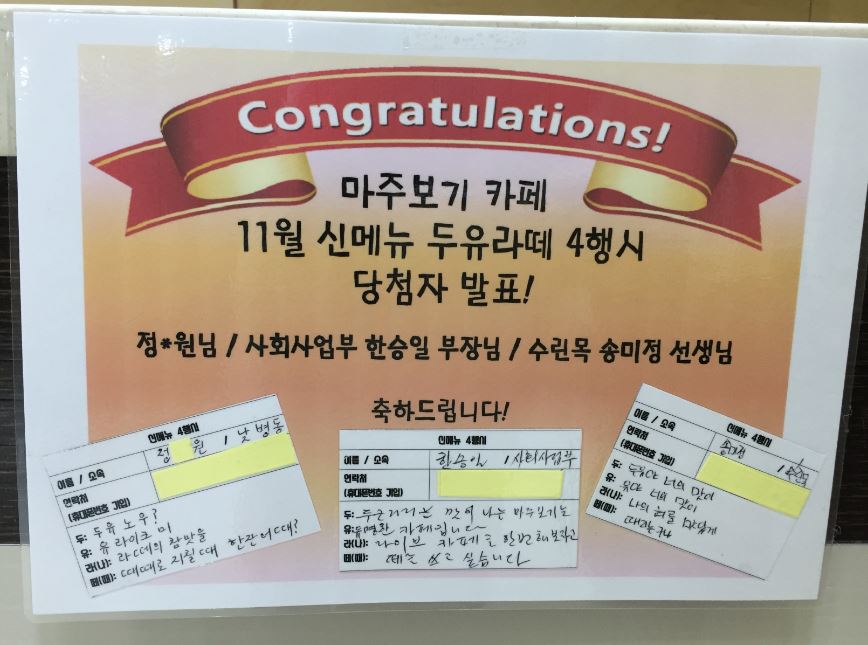 Congratulations!
마주보기 카페
11월 신메뉴 두유라떼 4행시
당첨자 발표!
정*원님 / 사회사업부 한승일 부장님 / 수린목 송미정 선생님
축하드립니다!
신메뉴 4행시
이름 / 소속 정 원 / 낮병동
연락처
(휴대폰번호 기입)
두: 두유 노우?
유: 유 라이크 미
라(나): 라떼의 참맛을
떼(때): 때때로 지칠때 한잔어때?
신메뉴 4행시
이름 / 소속 한승일 / 사회사업부
연락처
(휴대폰번호 기입)
두: 두근거리는 맛이 나는 마주보기는
유: 유명한 카페입니다
라(나): 라이브 카페를 한번 해보자고
떼(때): 떼를 쓰고 싶습니다
신메뉴 4행시
이름 / 소속 송미정 /
연락처
(휴대폰번호 기입)
두: 두유야 너의 맛이
유: 유야 너의 맛이
라(나): 나의 혀를
떼(때): 때리는구나